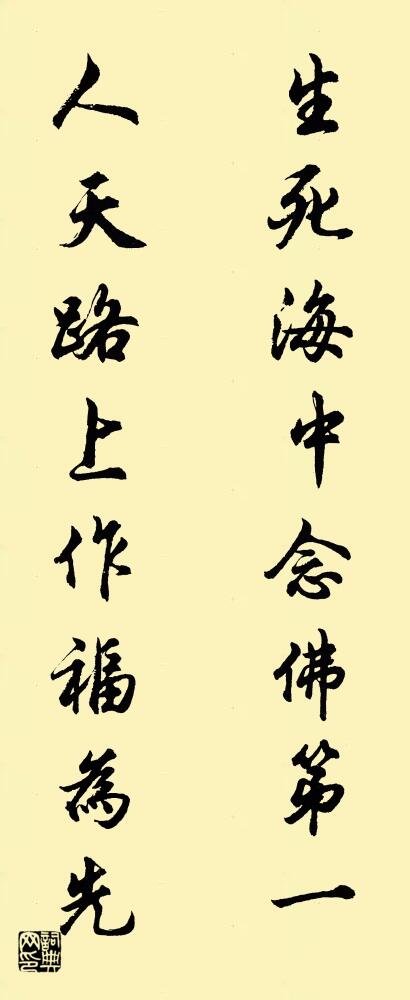 生死海中念佛第一
人天路上作福為先
詞典网印